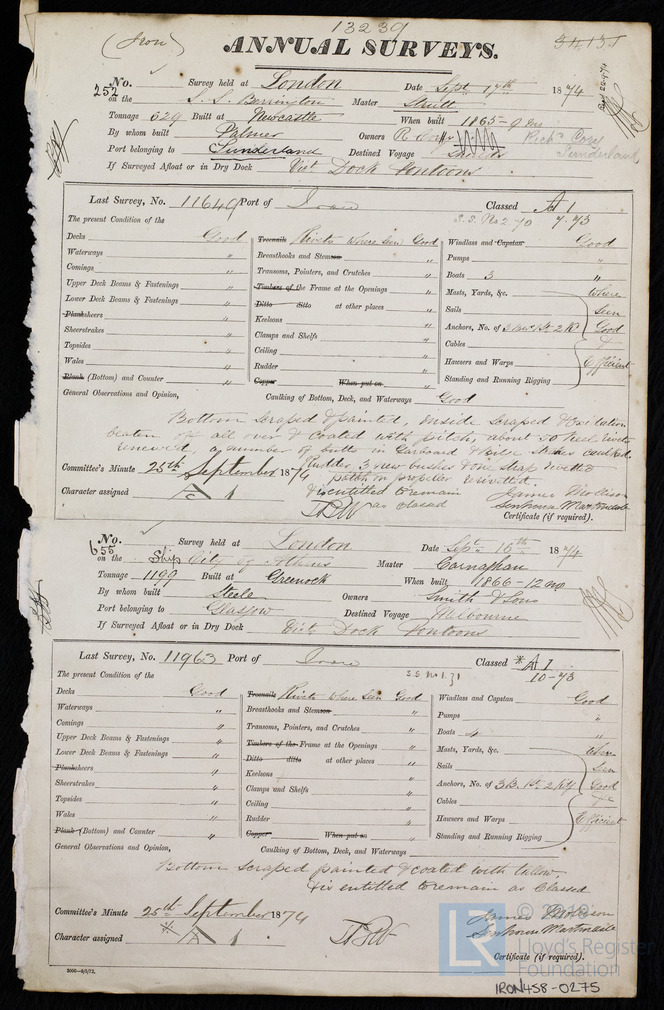 13239
(Iron) ANNUAL SURVEYS. 34151
No. 252 Survey held at London Date Sept 17th 1874
on the S.S. Barrington Master Strutt
Tonnage 629 Built at Newcastle When built 1865 - 9 mo
By whom built Palmer Owners R. Cory Rich. Cory
Port belonging to Sunderland Destined Voyage Shields Sunderland
If Surveyed Afloat or in Dry Dock Vict Dock Pontoons
Last Survey, No. 11649 Port of Classed A 1
S.S. No 2-70 7.73
The present Condition of the
Decks Good Treenails Rivets where seen Good Windlass and Capstan Good
Waterways " Breasthooks and Stemson " Pumps "
Comings " Transoms, Pointers, and Crutches " Boats 3 "
Upper Deck Beams & Fastenings " Timbers of the Frame at the Openings " Masts, Yards, &c. where
Lower Deck Beams & Fastenings " Ditto ditto at other places " Sails seen
Planksheers " Keelsons " Anchors, No. of Good
Sheerstrakes " Clamps and Shelfs " Cables &
Topsides " Ceiling " Hawsers and Warps Efficient
Wales " Rudder " Standing and Running Rigging
Plank (Bottom) and Counter " Copper When put on
General Observations and Opinion, Caulking of Bottom, Deck, and Waterways Good
Bottom scraped & painted, inside scraped & oxidation
beaten off all over & coated with pitch, about 50 keel rivets
renewed, a number of butts in Garboard & Bilge strakes caulked.
Rudder 3 new bushes & one strap rivetted
patch on propeller rerivetted.
Committee's Minute 25th September 1874
& is entitled to remain as classed
Character assigned A 1
James Mollison
Senhouse Martindale
Certificate (if required).
No. 655 Survey held at London Date Sept. 16th 1874
on the Ship City of Athens Master Carnaghan
Tonnage 1199 Built at Greenock When built 1866 - 12 mo
By whom built Steele Owners Smith & Sons
Port belonging to Glasgow Destined Voyage Melbourne
If Surveyed Afloat or in Dry Dock Vict Dock Pontoons
Last Survey, No. 11963 Port of Classed * A 1
S.S. No 1.71 10-73
The present Condition of the
Decks Good Treenails Rivets where seen Good Windlass and Capstan Good
Waterways " Breasthooks and Stemson " Pumps "
Comings " Transoms, Pointers, and Crutches " Boats 4 "
Upper Deck Beams & Fastenings " Timbers of the Frame at the Openings " Masts, Yards, &c. where
Lower Deck Beams & Fastenings " Ditto ditto at other places " Sails seen
Planksheers " Keelsons " Anchors, No. of 3B. 1St. 2 Kg Good
Sheerstrakes " Clamps and Shelfs " Cables &
Topsides " Ceiling " Hawsers and Warps Efficient
Wales " Rudder " Standing and Running Rigging
Plank (Bottom) and Counter " Copper When put on
General Observations and Opinion, Caulking of Bottom, Deck, and Waterways
Bottom scraped painted & coated with tallow,
& is entitled to remain as Classed
Committee's Minute 25th September 1874
James Mollison
Senhouse Martindale
Character assigned * A 1
Certificate (if required).
3000—6/5/72.
LR © 2019 Lloyd's Register Foundation
IRON458-0275